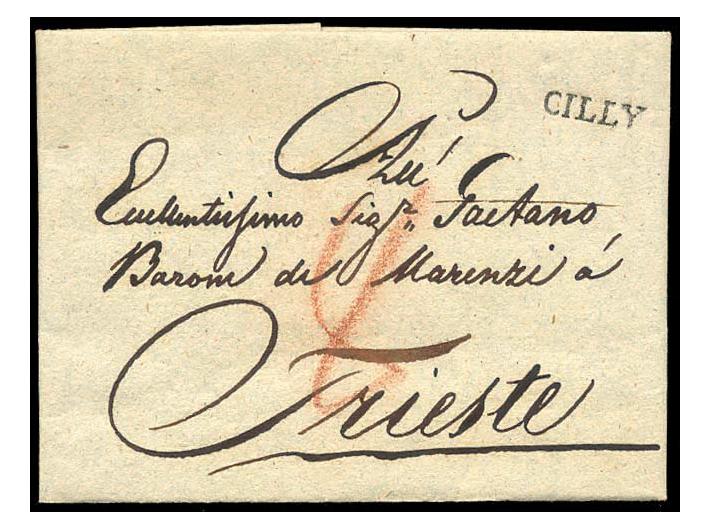 CILLY
All'
Eccellentissimo Sigr. Gaetano
Baron de Marenzi á
Trieste